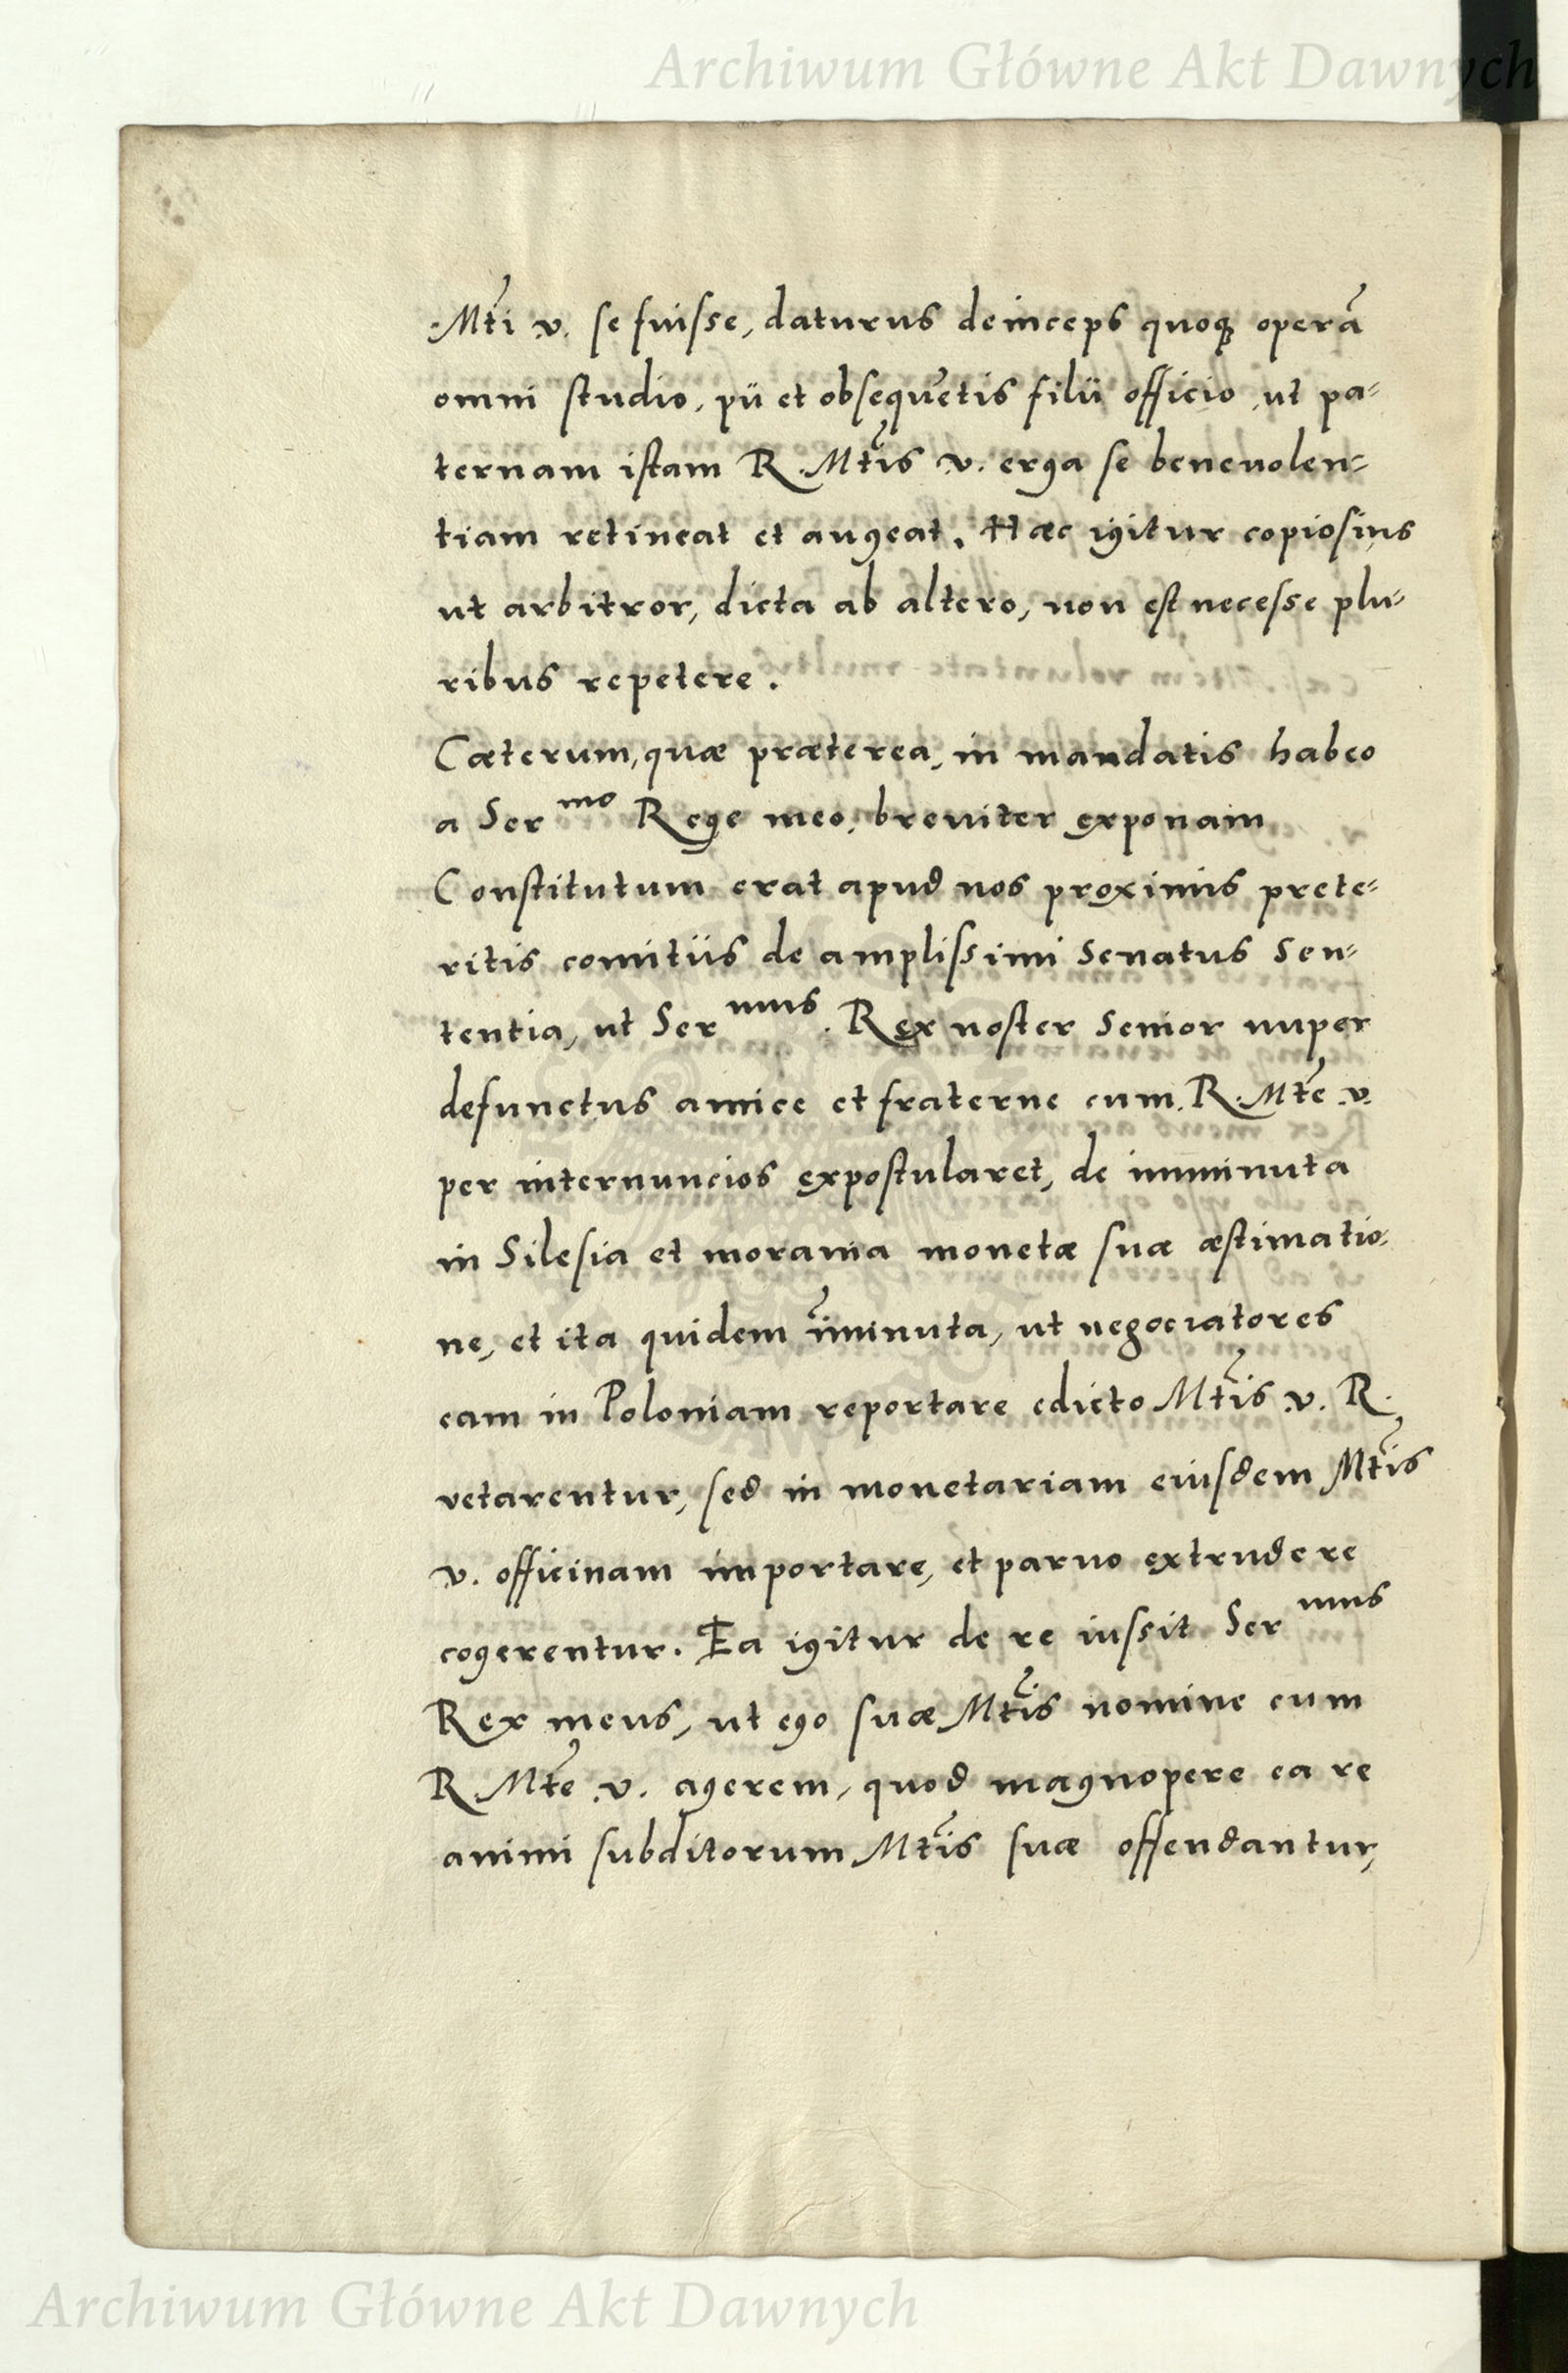 Archiwum Główne Akt Dawnych
Mti v. se fuisse, daturus deinceps quoq; operā
omni studio, pii et obsequētis filii officio, ut pa-
ternam istam R. Mtis v. erga se beneuolen-
tiam retineat et augeat. Hæc igitur copiosius
ut arbitror, dicta ab altero, non est necesse plu-
ribus repetere.
Cæterum, quæ præterea, in mandatis habeo
a Ser^mo Rege meo, breuiter exponam
Constitutum erat apud nos proximis prete-
ritis comitiis de amplissimi Senatus Sen-
tentia, ut Ser^mus. Rex noster Senior nuper
defunctus amice et fraterne cum R. Mte v.
per internuncios expostularet, de imminuta
in Silesia et morauia monetæ suæ æstimatio-
ne, et ita quidem īminuta, ut negociatores
eam in Poloniam reportare edicto Mtis v. R.
vetarentur, sed in monetariam eiusdem Mtis
v. officinam importare, et paruo extrudere
cogerentur. Ea igitur de re iussit Ser^mus
Rex meus, ut ego suæ Mtis nomine cum
R. Mte v. agerem, quod magnopere ea re
animi subditorum Mtis suæ offendantur,
Archiwum Główne Akt Dawnych